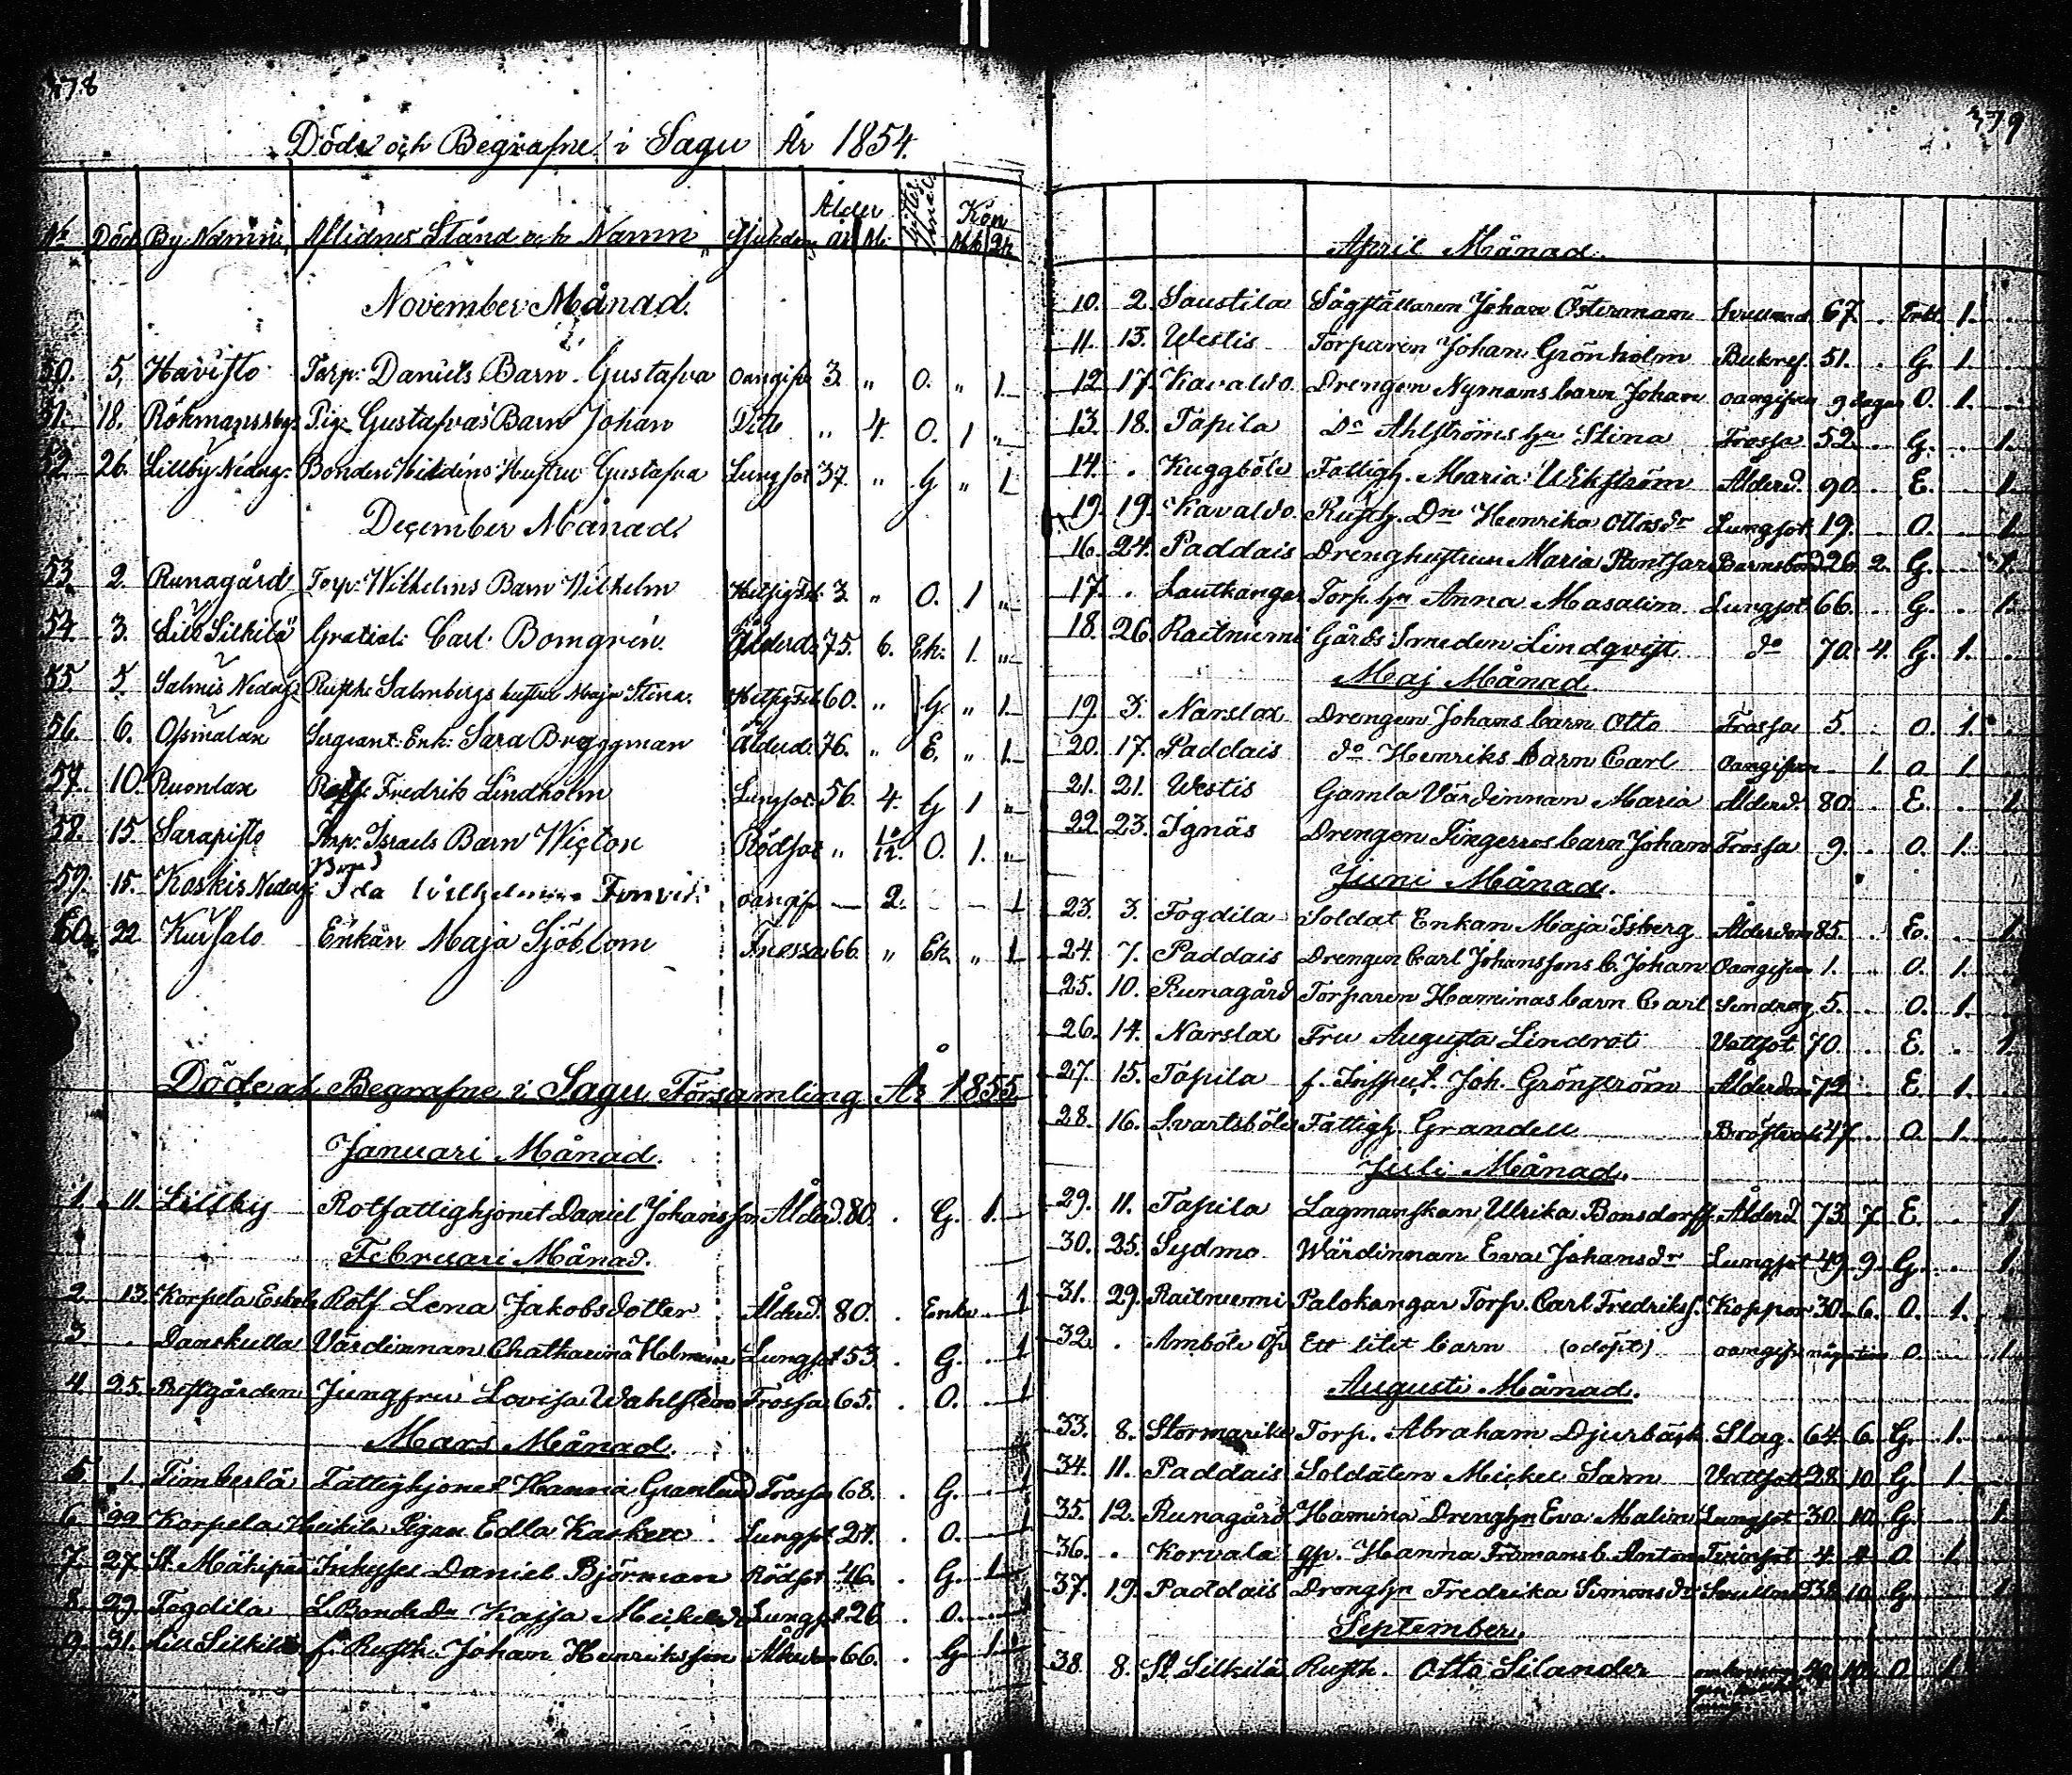 378
Döde och Begrafne i Sagu År 1854.
No Död By Namn Aflidnes Stånd och Namn Sjukdom Ålder år M. Giftes Stånd Kön Mk Qk
November Månad.
50. 5. Havisto Torp: Daniels Barn Gustafva oangifv 3. " O. " 1.
51. 18. Rökmansby Pig. Gustafvas Barn Johan Ditto " 4. O. 1 "
52. 26. Lillby Nedag. Bonden Hildéns Hustru Gustafva Lungsot 37. " G " 1
December Månad.
53. 2. Runagård Torp: Wilhelms Barn Wilhelm Hetsig Feb. 3. " O. 1 "
54. 3. Lill Silkilä Gratiali: Carl Bomgrén. Ålderd: 75. 6. Ek: 1. "
55. 5. Salmis Nedag. Rusth: Salmbergs hustru Maja Stina. Hetsig Feb. 60. " G " 1.
56. 6. Ossmalax Sergeant: Enk: Sara Bryggman Ålderd: 76. " E. " 1.
57. 10. Ruonlax Fredrik Lindholm Lungsot 56. 4. G 1 "
58. 15. Sarapisto Torp: Israels Barn Wictor Rödsot " 10/12. O. 1. "
59. 15. Koskis Nedag. Barn Ida Wilhelmina oangifv — 2. - - 1
60. 22 Kuisalo Enkan Maja Sjöblom Trossa 66. " Ek " 1
Döde och Begrafne i Sagu Församling År 1855
Januari Månad.
1. 11. Lillby Rotfattighjonet Daniel Johansson Ålderd. 80. . G. 1.
Februari Månad.
2. 13. Korpela Eskola Rotf Lena Jakobsdotter Ålderd. 80. . Enka 1
3 . Danskulla Värdinnan Chatharina Holmson Lungsot 53. . G. . 1
4. 25. Prestgården Jungfru Lovisa Wahlsten Trossa 65. . O. 1
Mars Månad.
5 1. Timberlä Fattighjonet Hanna Granlund Trossa 68. . G. 1
6. 22 Korpela Heikila Pigan Edla Lungsot 24. . O. 1
7. 27. St. Mäkipää Inhyses Daniel Björman Rödsot 46. . G. 1
8. 29 Fogdila L.Bonded:r Kajsa Mickelsdr Lungsot 26 . O. 1
9. 31. Lill Silkilä f. Rusth. Johan Henriksson Ålderdom 66. . G 1
379
April Månad.
10. 2. Saustila Sågställaren Johan Österman Svullnad 67. . Enkl. 1.
11. 13. Westis Torparen Johan Grönholm Bukref. 51. . G. 1.
12. 17. Kavaldo. Drengen Nymans barn Johan oangifven 9 dagar O. 1.
13. 18. Tapila Do Ahlströms hu Stina Trossa 52. . G. . 1.
14. . Kuggböle Fattigh. Maria Wikström Ålderd. 90. . E. . 1.
19. 19. Kavaldo. Rusth. Dn Henrika Ottosdr Lungsot 19. . O. . 1.
16. 24. Paddais Drenghustrun Maria Barnsbörd 26. 2. G. 1.
17. . Lautkangas Torp. hu Anna Masalin Lungsot 66. . G. . 1.
18. 26. Raitniemi Gårds Smeden Lindqvist do 70. 4. G. 1.
Maj Månad
19. 3. Narslax Drengen Johans barn Otto Trossa 5. . O. 1.
20. 17. Paddais do Henriks barn Carl Oangifven . 1. O. 1
21. 21. Westis Gamla Värdinnan Maria Ålderd. 80. . E. . 1
22. 23. Ignäs Drengen Fingerroos barn Johan Trossa 9. . O. 1.
Juni Månad.
23. 3. Fogdila Soldat Enkan Maja Isberg Ålderdom 85. . E. . 1.
24. 7. Paddais Drengen Carl Johanssons b. Johan Oangifven 1. . O. 1.
25. 10. Runagård Torparen Haminas barn Carl 5. . O. 1.
26. 14. Narslax Fru Augusta Lindrot Vattsot 70. . E. . 1.
27. 15. Tapila f. Inspect. Joh. Grönström Ålderdom 72 . E. 1.
28. 16. Svartsböle Fattigh. Grandell 47. . O. 1.
Juli Månad.
29. 11. Tapila Lagmanskan Ulrika Bonsdorff Ålderd 73. 7. E. . 1
30. 25. Sydmo Wärdinnan Eva Johansdr Lungsot 49. 9. G. . 1.
31. 29. Raitniemi Palokangar Torp. Carl Fredrikss. Koppor 30. 6. O. 1.
32. . Amböle Öf. Ett litet barn (odöpt) oangifv. O. 1.
Augusti Månad.
33. 8. Stormarike Torp. Abraham Djurbäck Slag. 64. 6. G. 1.
34. 11. Paddais Soldaten Mickel Sarn Vattsot 28. 10. G. 1
35. 12. Runagård Hamina Drenghu Eva Malin Lungsot 30. 10. G. . 1.
36. . Korvala gp. Hanna Fromans b. Anton 4. 4 O. 1.
37. 19. Paddais Drenghu Fredrika Simonsdr Svullnad 38. 10. G. . 1
September.
38. 8. St Silkilä Rusth. Otto Silander 10. O. 1